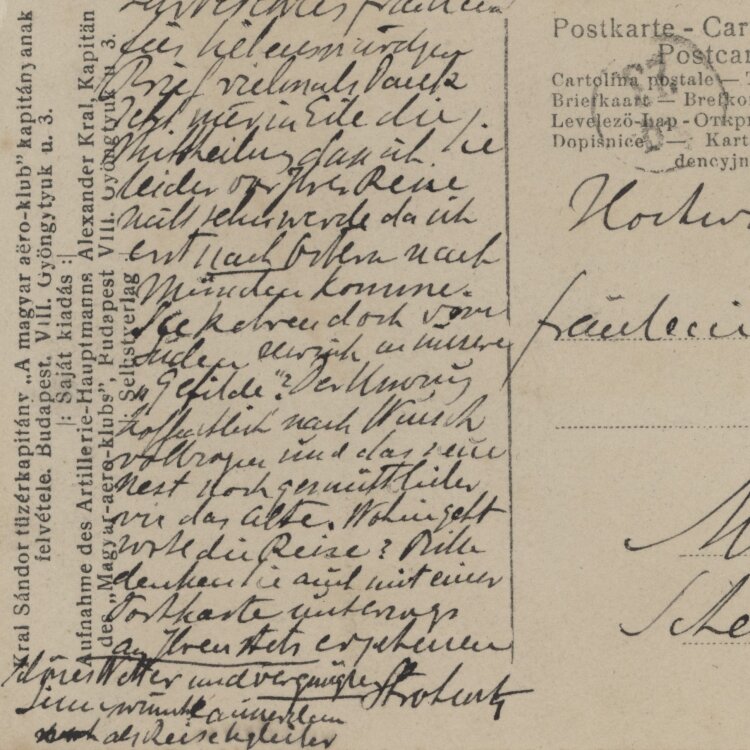 Kral Sándor tüzérkapitány „A magyar aëro-klub" kapitányának
felvétele. Budapest. VIII. Gyöngytyuk u. 3.
|: Saját kiadás :|
Aufnahme des Artillerie-Hauptmanns Alexander Kral, Kapitän
des „Magyar-aëro-klubs", Budapest VIII. Gyöngtyuk u. 3.
Selbstverlag
Fräulein
für liebenswürdigen
Brief vielmals Dank
mir in Eile die
Mittheilung dass ich Sie
leider vor Ihrer Reise
nicht sehen werde da ich
erst nach Ostern nach
München komme.
Sie kehren doch vom
Süden zurück in unsere
„Gefilde"? Der Umzug
hoffentlich nach Wunsch
vollzogen und das neue
Nest noch gemüthlicher
wie das alte. Wohin geht
wohl die Reise? Bitte
denken Sie auch mit einer
Postkarte unterwegs
an Ihren stets ergebenen
Schönes Wetter und vergnügten
Sinn wünscht ausserdem
als Reisebegleiter
Postkarte - Car
Postcar
Cartolina postale —
Briefkaart — Brefko
Levelező-Lap - Откр
Dopisnice — Kart
dencyjn
Fräulein